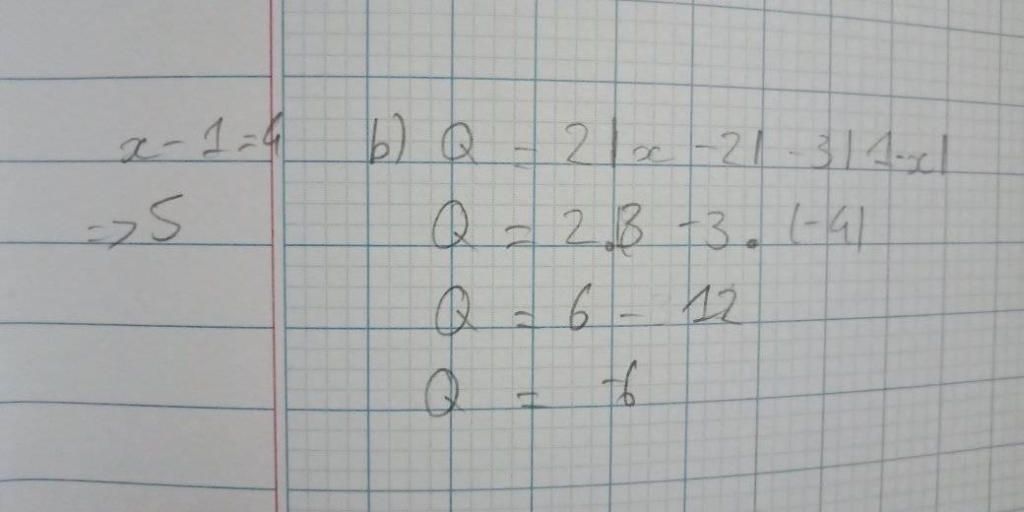 x - 1 = 4
=> 5
b) Q = 2|x - 2| - 3|1 - x|
Q = 2.3 - 3. |-4|
Q = 6 - 12
Q = -6